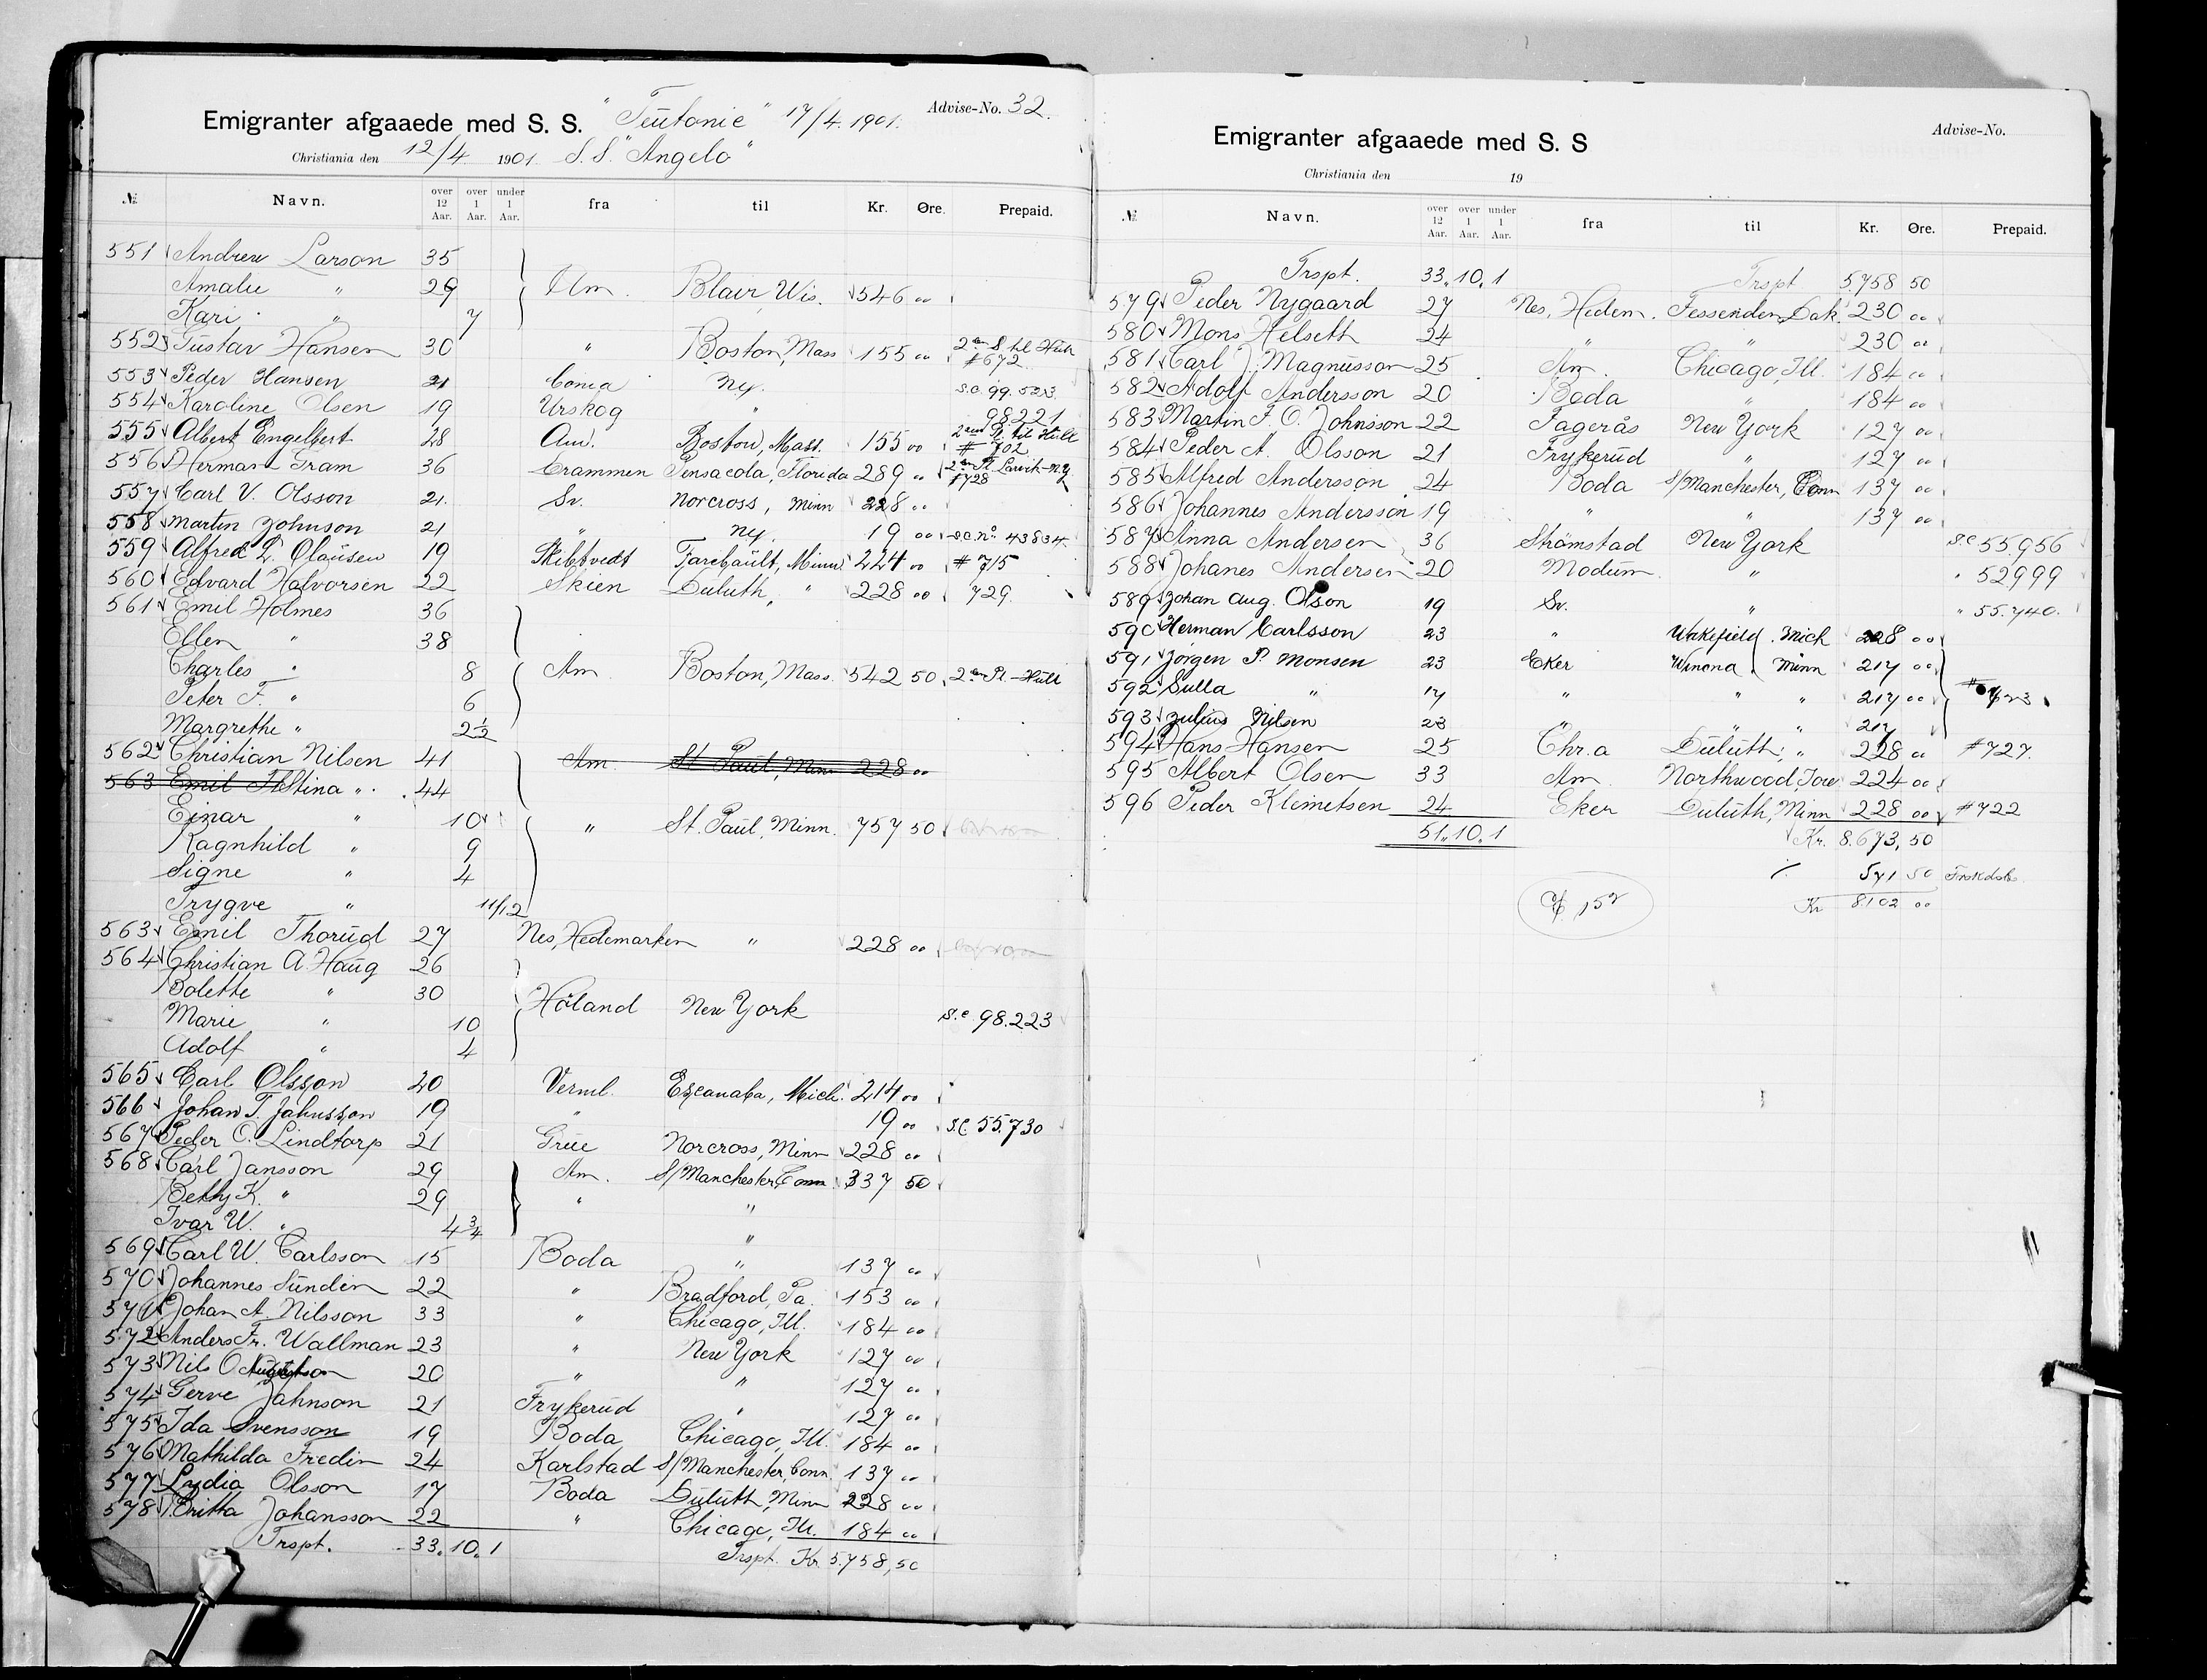 Emigranter afgaaede med S. S. "Teutonic" 17/4. 1901. Advise-No. 32.
Christiania den 12/4 1901. S. S. "Angelo"
№ Navn. over 12 Aar. over 1 Aar. under 1 Aar. fra til Kr. Øre. Prepaid.
551 Andrew Larson 35
Amalie " 29 Am. Blair, Wis. 546 00
Kari " 7
552 Gustav Hansen 30 " Boston, Mass 155 00 2den Pl. til Hull #672
553 Peder Hansen 21 Conia ny. s.c. 99.523
554 Karoline Olsen 19 Urskog " 98221
555 Albert Engelbert 28 Am. Boston, Mass. 155 00 2den Pl. til Hull # 702
556 Herman Gram 36 Drammen Pensacola, Florida 289 00 2den Pl. Larvik-N.Y. #728
557 Carl V. Olsson 21. Sv. Norcross, Minn 228 00
558 Martin Johnson 21 " ny. 19 00 s.c. no. 43834
559 Alfred L. Olausen 19 Skibtvedt Farebault, Minn 224 00 # 715
560 Edvard Halvorsen 22 Skien Duluth, " 228 00 729.
561 Emil Holmes 36
Ellen " 38
Charles " 8 Am Boston, Mass. 542 50 2den Pl. - Hull
Peter F. " 6
Margrethe " 2½
562 Christian Nilsen 41 Am. St Paul, Minn 228 00
563 Emil Th Stina " 44
Einar " 10
Ragnhild " 9 " St. Paul, Minn. 757 50
Signe " 4
Trygve " 11/12
563 Emil Thorud 27 Nes, Hedemarken " 228 00
564 Christian A. Haug 26
Bolette " 30 Höland New York
Marie " 10 s.c. 98.223
Adolf " 4
565 Carl Olsson 20 Verml. Escanaba, Mich. 214 00
566 Johan T. Jahnsson 19 " 19 00 s.c. 55.730
567 Peder O. Lindtorp 21 Grue Norcross, Minn 228 00
568 Carl Jansson 29 Am. S/Manchester, Conn 337 50
Betty K. " 29 " "
Ivar W. " 4¾ "
569 Carl W. Carlsson 15 Boda " 137 00
570 Johannes Sundin 22 " Bradford, Pa. 153 00
571 Johan A. Nilsson 33 " Chicago, Ill. 184 00
572 Anders Fr. Wallman 23 " New York 127 00
573 Nils O 20 " " 127 00
574 Gerve Jahnson 21 Frykerud " 127 00
575 Ida Svensson 19 Boda Chicago, Ill. 184 00
576 Mathilda Fredin 24 Karlstad S/Manchester, Conn. 137 00
577 Lydia Olsson 17 Boda Duluth, Minn 228 00
578 Britta Johansson 22 " Chicago, Ill. 184 00
Trspt. 33. 10. 1 Trspt. Kr. 5.758,50
Emigranter afgaaede med S. S Advise-No.
Christiania den 19
№ Navn. over 12 Aar. over 1 Aar. under 1 Aar. fra til Kr. Øre. Prepaid.
Trspt. 33. 10. 1 Trspt 5.758 50
579 Peder Nygaard 27 Nes, Hedem. Fessenden, Dak. 230 00
580 Mons Helsett 24 " " 230 00
581 Carl J. Magnusson 25 Am. Chicago, Ill. 184 00
582 Adolf Andersson 20 Boda " 184 00
583 Martin F. O. Johnsson 22 Fagerås New York 127 00
584 Peder A. Olsson 21 Frykerud " 127 00
585 Alfred Andersson 24 Boda S/Manchester, Conn 137 00
586 Johannes Andersson 19 " " 137 00
587 Anna Andersen 36 Strömstad New York s.c 55.956
588 Johanes Andersen 20 Modum. " " 52999
589 Johan Aug. Olson 19 Sv. " " 55.740.
590 Herman Carlsson 23 " Wakefield. Mich 228 00
591 Jörgen P. Monsen 23 Eker Winona, Minn 217 00
592 Sulla " 17 " " " 217 00 # 723
593 Julius Nilsen 23 " " " 217
594 Hans Hansen 25 Chr.a Duluth, " 228 00 #727.
595 Albert Olsen 33 Am. Northwood, Iow 224 00
596 Peder Klemetsen 24 Eker Duluth, Minn 228 00 #722
51. 10. 1 Kr. 8.673, 50
571 50
Kr 8102 00